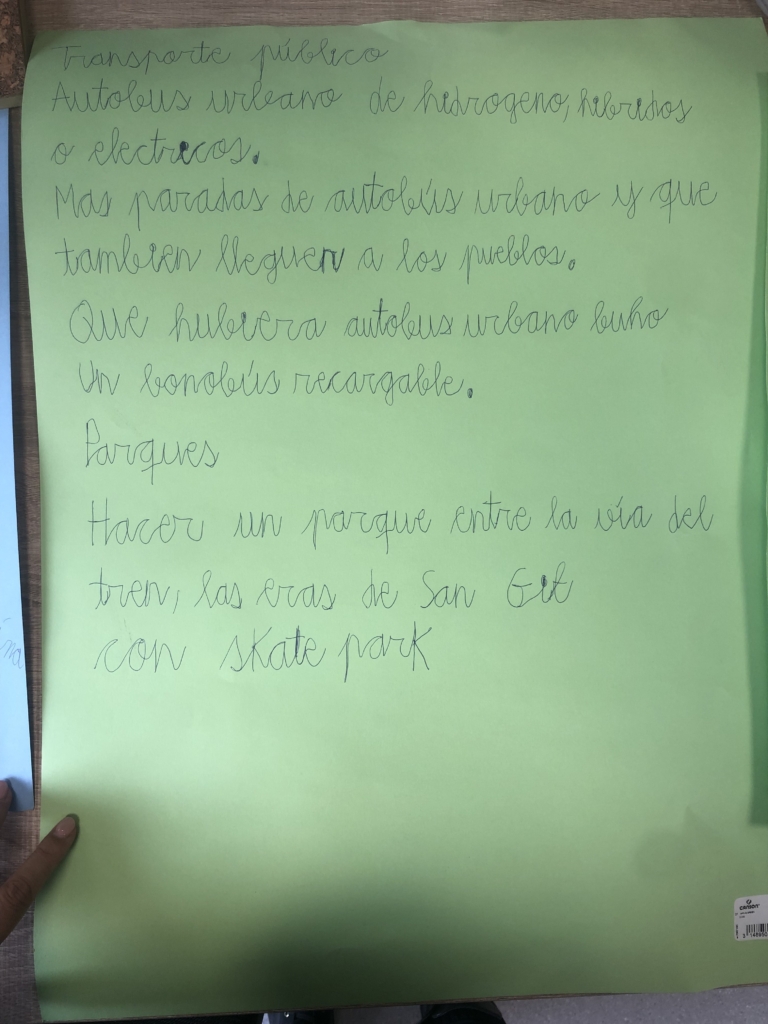 Transporte público
Autobus urbano de hidrogeno, hibridos
o electricos.
Mas paradas de autobús urbano y que
tambien lleguen a los pueblos.
Que hubiera autobus urbano buho
Un bonobús recargable.
Parques
Hacer un parque entre la vía del
tren, las eras de San Gil
con skate park
CANSON